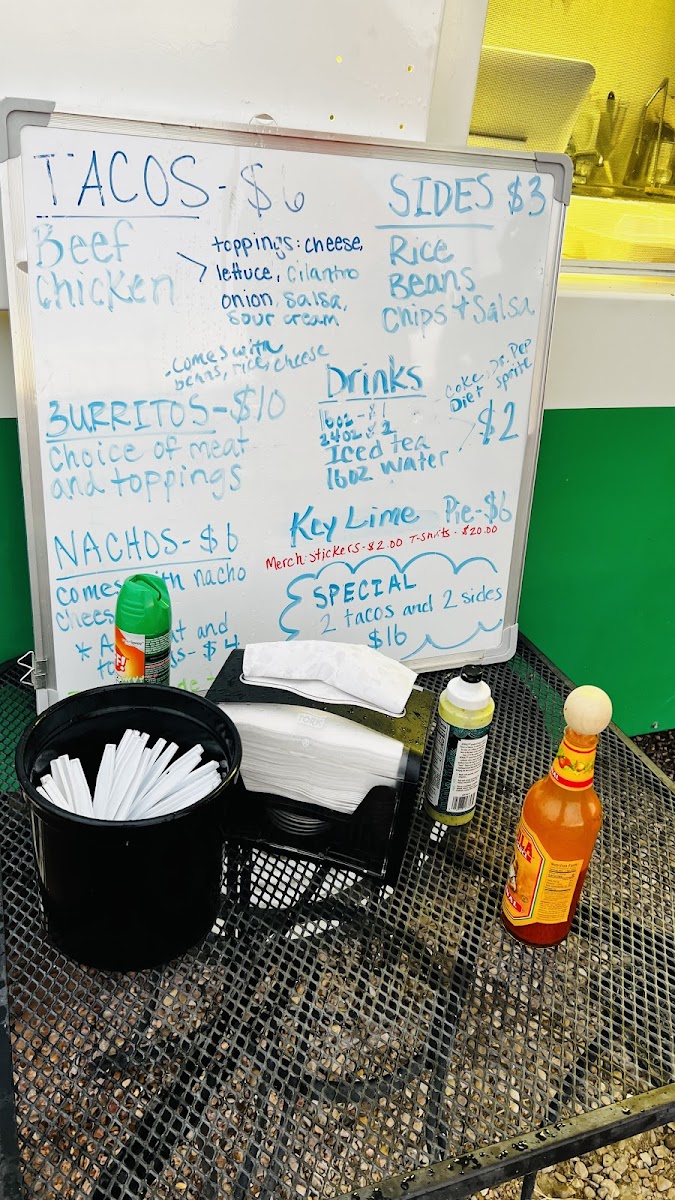 TACOS - $6
Beef
Chicken
toppings: cheese,
lettuce, Cilantro
onion, Salsa,
Sour cream
SIDES $3
Rice
Beans
Chips + Salsa
- comes with
beans, rice, cheese
BURRITOS - $10
Choice of meat
and toppings
Drinks
16oz - $1
24oz $2
Iced tea
16oz water
Coke, Dr. Pep
Diet Sprite
$2
Key Lime Pie - $6
Merch: stickers - $2.00 T-shirts - $20.00
NACHOS - $6
comes with nacho
Chees
* A and
- $4
SPECIAL
2 tacos and 2 sides
$16
TORK